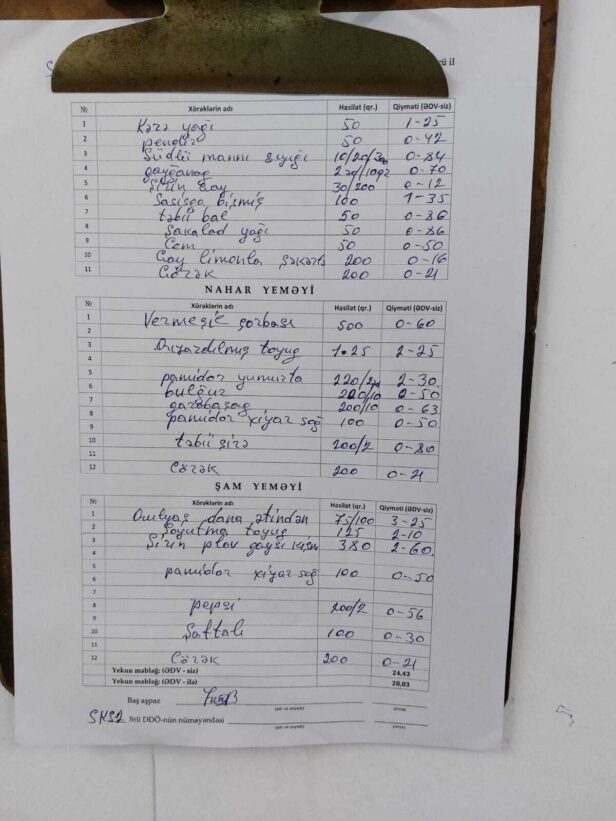 cü il
№ Xörəklərin adı Hasilat (qr.) Qiyməti (ƏDV-siz)
1 Kərə yağı 50 1-25
2 pendir 50 0-42
3 Südlü mannı sıyığı 10/20/300 0-84
4 qayğanaq 0-70
5 Şirin çay 30/200 0-12
6 Sasisqa bişmiş 100 1-35
7 təbii bal 50 0-86
8 Şakalad yağı 50 0-86
9 Cem 50 0-50
10 Çay limonla, şəkərlə 200 0-16
11 Çörək 200 0-21
NAHAR YEMƏYİ
№ Xörəklərin adı Hasilat (qr.) Qiyməti (ƏDV-siz)
1 Vermeşil şorbası 500 0-60
2
3 Qızardılmış toyuq 1.25 2-25
4
5 pamidor yumurta 220/ 2-30
6 bulğur 200/10 0-50
7 qarabaşaq 200/10 0-63
8 pamidor xiyar soğ 100 0-50
9
10 təbii şirə 200/2 0-80
11
12 Çörək 200 0-21
ŞAM YEMƏYİ
№ Xörəklərin adı Hasilat (qr.) Qiyməti (ƏDV-siz)
1 Quılyaş dana ətindən 75/100 3-25
2 Soyutma toyuq 125 2-10
3 Şirin plov qaysı kişm 380 2-60
4
5 pamidor xiyar soğ 100 0-50
6
7
8 pepsi 200/2 0-56
9
10 Şaftalı 100 0-30
11
12 Çörək 200 0-21
Yekun məbləğ: (ƏDV - siz) 24,43
Yekun məbləğ: (ƏDV - ilə) 28,83
Baş aşpaz
(adı və soyadı) (imza)
№li DDÖ-nün nümayəndəsi
(adı və soyadı) (imza)